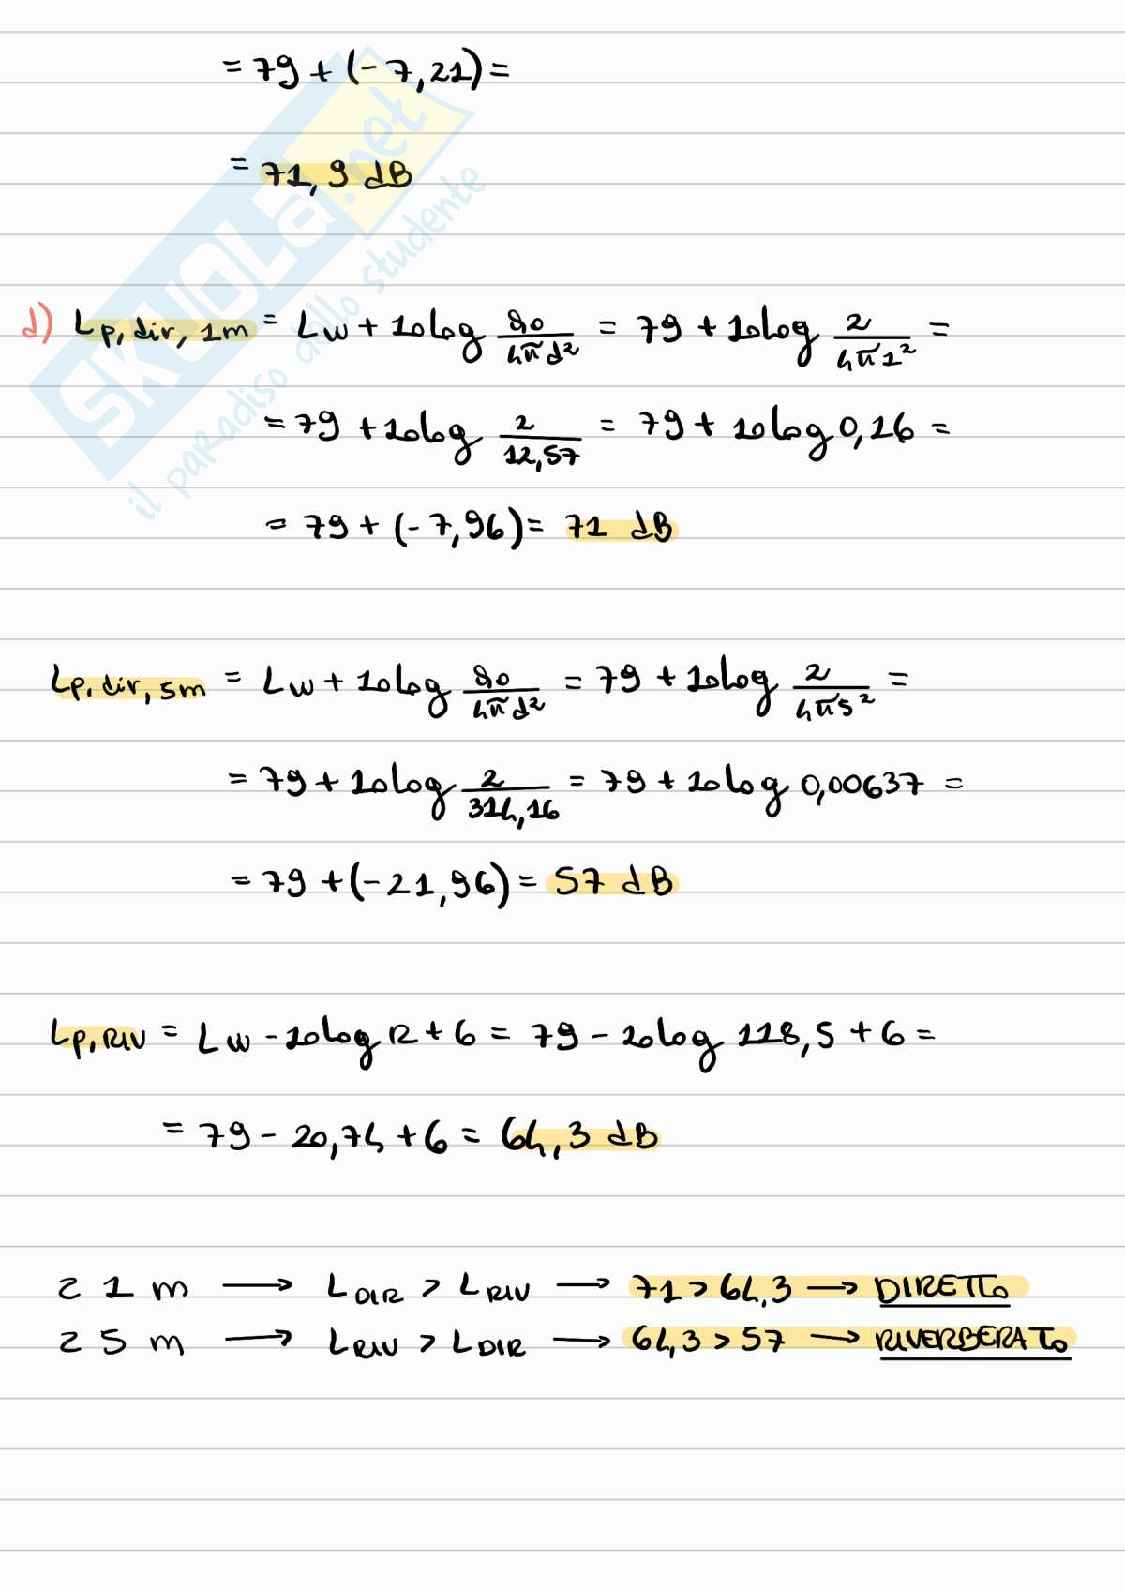 = 79 + (-7,21) =
= 71,9 dB
SKUOLA.net
il paradiso dello studente
d) Lp, dir, 1m = Lw + 10log Q0/4πd² = 79 + 10log 2/4π1² =
= 79 + 10log 2/12,57 = 79 + 10log 0,16 =
= 79 + (-7,96) = 71 dB
Lp, dir, 5m = Lw + 10log Q0/4πd² = 79 + 10log 2/4π5² =
= 79 + 10log 2/314,16 = 79 + 10log 0,00637 =
= 79 + (-21,96) = 57 dB
Lp, RIV = Lw - 10log R + 6 = 79 - 10log 118,5 + 6 =
= 79 - 20,74 + 6 = 64,3 dB
2 1 m → LDIR > LRIV → 71 > 64,3 → DIRETTO
2 5 m → LRIV > LDIR → 64,3 > 57 → RIVERBERATO